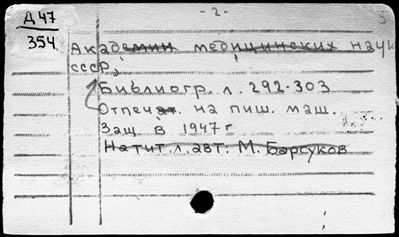 - 2 -
Д 47
354
Академии медицинских наук
СССР,
Библиогр. л. 292-303
Отпечат. на пиш. маш.
Защ. в 1947 г
На тит. л. авт: М. Барсуков